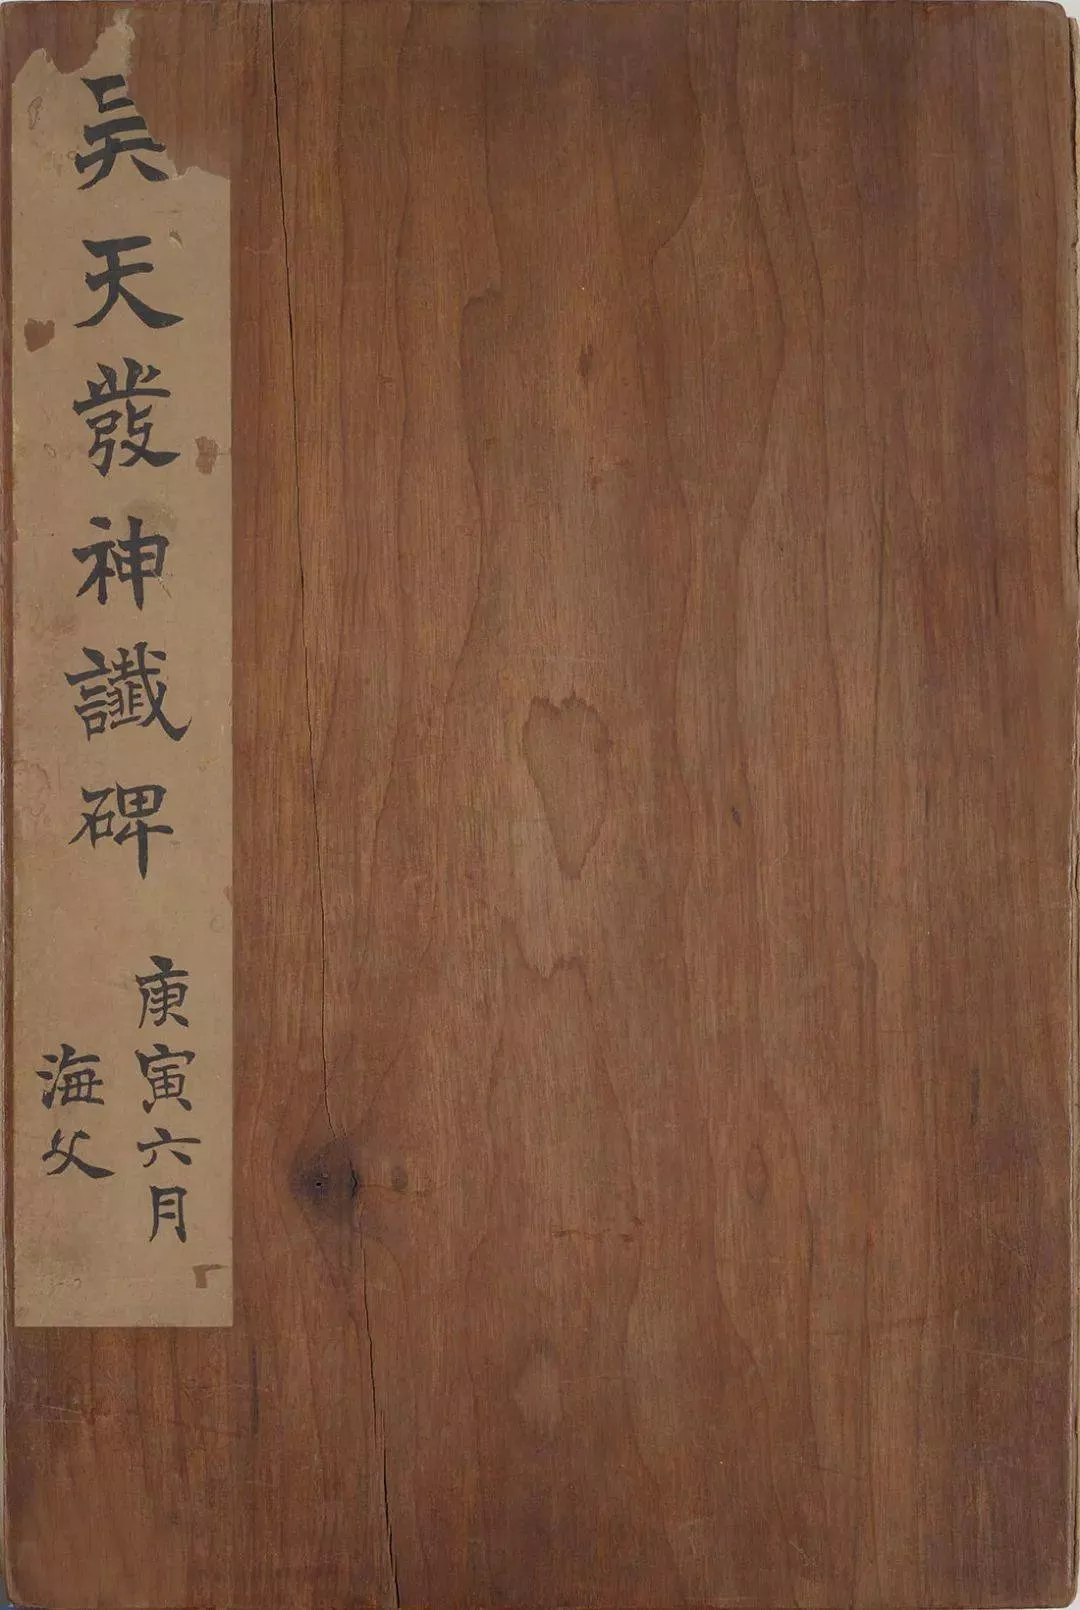 吴天發神讖碑
庚寅六月
海父